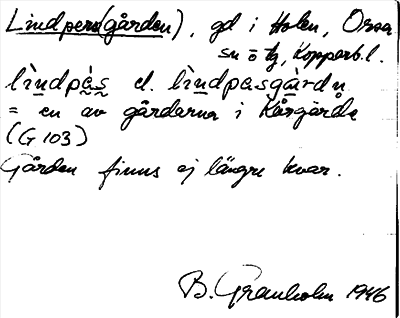 Lindpers(gården), gd i Holen, Orsa
sn o tg, Kopparb. l.
lìndpæ̀s el. lìndpæsgàrdn̥
= en av gårdarna i Kårgärde
(G 103)
Gården finns ej längre kvar.
B. Granholm 1946